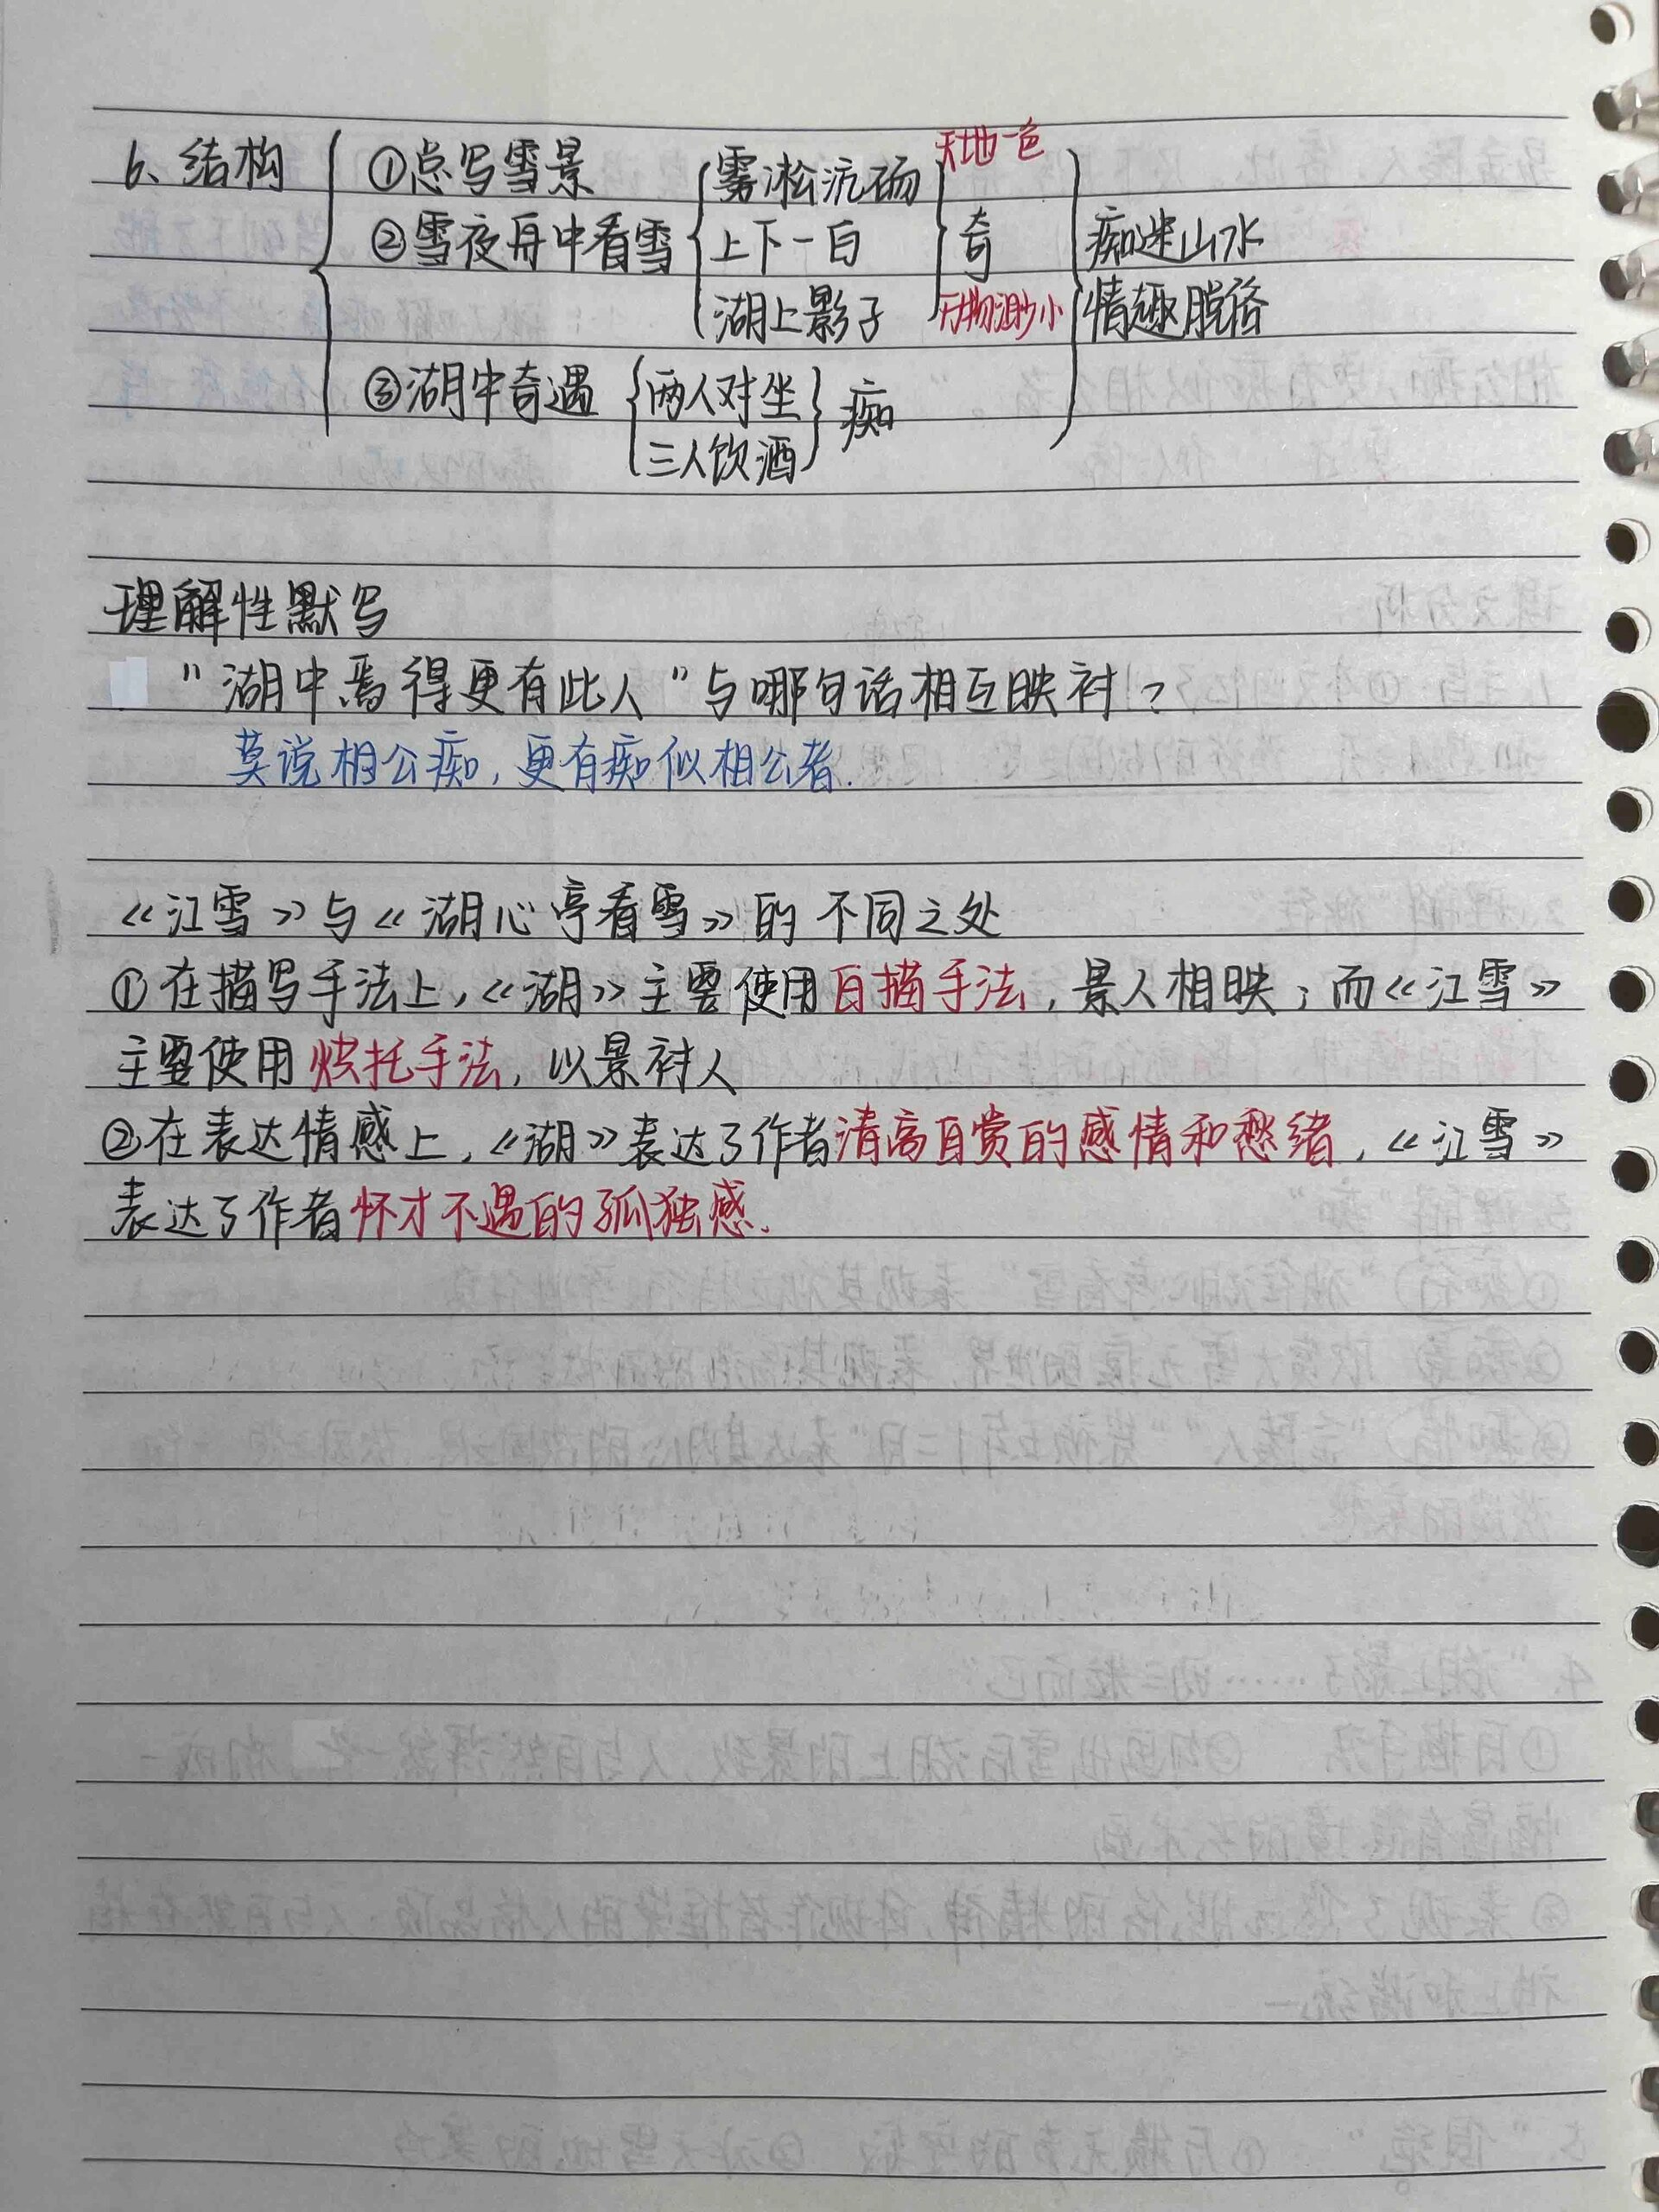 6、结构
①总写雪景
②雪夜舟中看雪
雾凇沆砀
上下一白
湖上影子
天地一色
奇
万物渺小
③湖中奇遇
两人对坐
三人饮酒
痴
痴迷山水
情趣脱俗
理解性默写
"湖中焉得更有此人"与哪句话相互映衬?
莫说相公痴,更有痴似相公者.
《江雪》与《湖心亭看雪》的不同之处
①在描写手法上,《湖》主要使用白描手法,景人相映;而《江雪》
主要使用烘托手法,以景衬人
②在表达情感上,《湖》表达了作者清高自赏的感情和愁绪,《江雪》
表达了作者怀才不遇的孤独感.